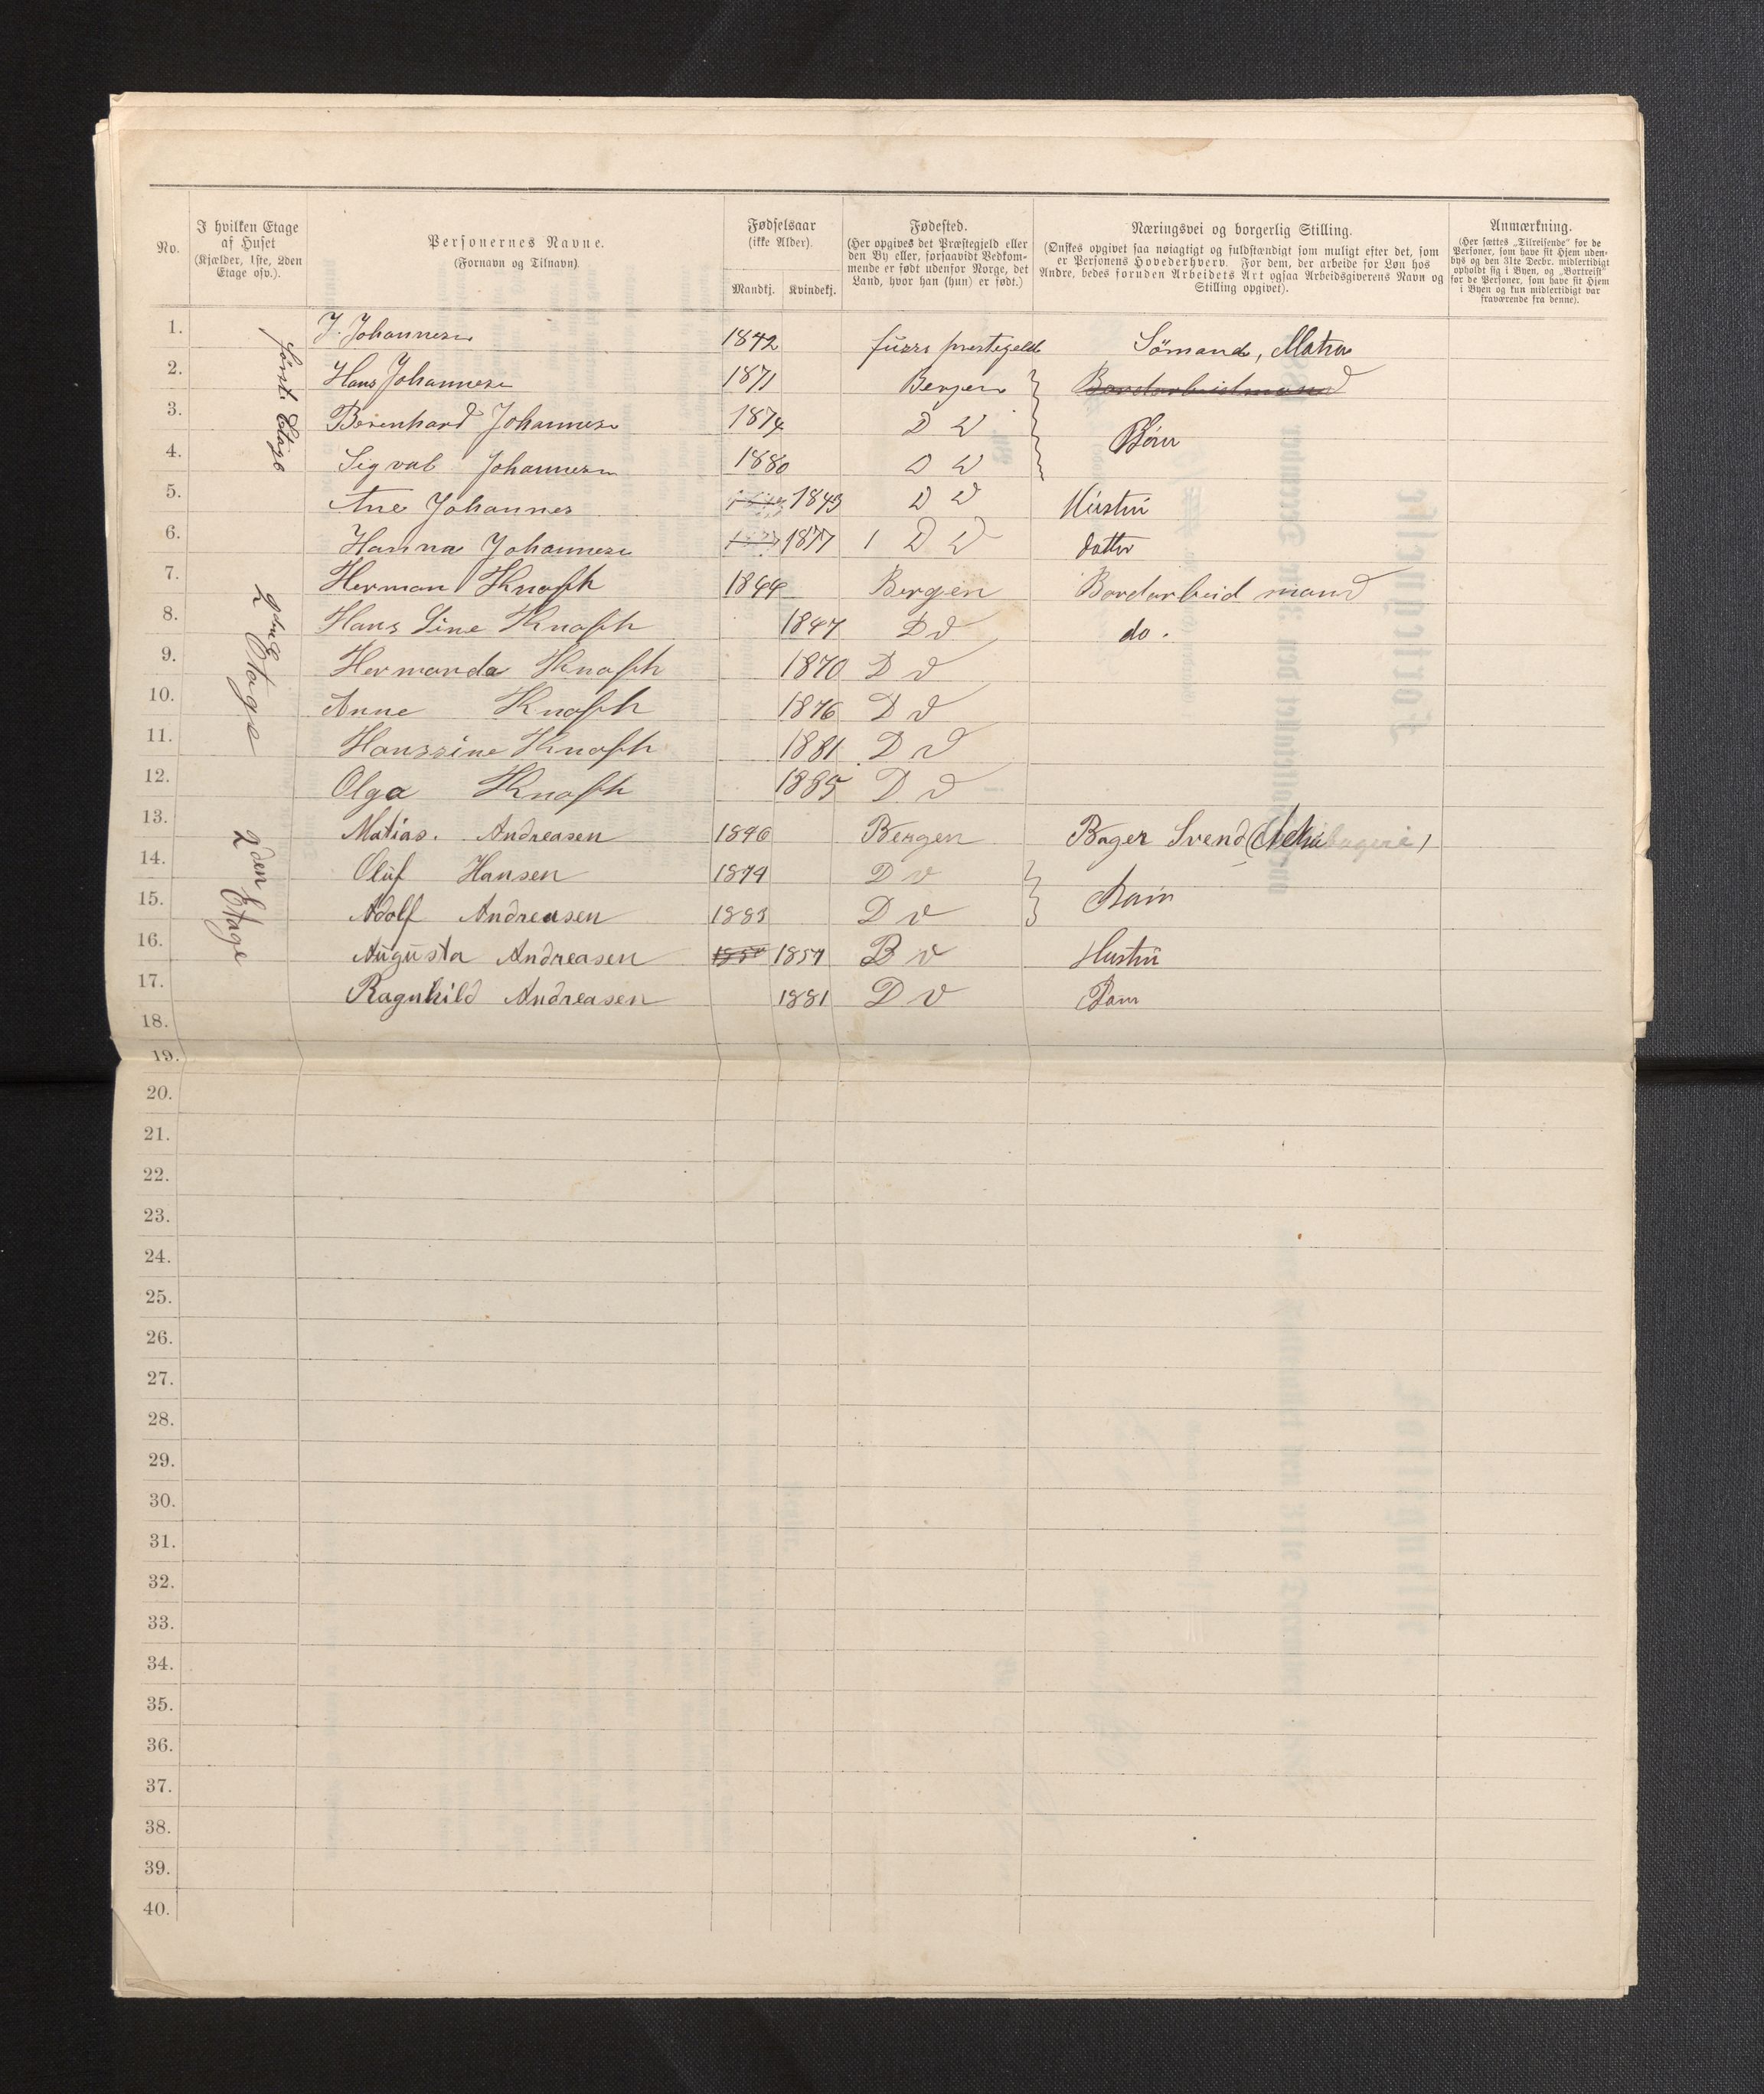 No.
I hvilken Etage af Huset (Kjælder, 1ste, 2den Etage osv.).
Personernes Navne. (Fornavn og Tilnavn).
Fødselsaar (ikke Alder). Mandkj. Kvindekj.
Fødested. (Her opgives det Præstegjeld eller den By eller, forsaavidt Vedkommende er født udenfor Norge, det Land, hvor han (hun) er født.)
Næringsvei og borgerlig Stilling. (Ønskes opgivet saa nøiagtigt og fuldstændigt som muligt efter det, som er Personens Hovederhverv. For dem, der arbeide for Løn hos Andre, bedes foruden Arbeidets Art ogsaa Arbeidsgiverens Navn og Stilling opgivet).
Anmærkning. (Her sættes „Tilreisende" for de Personer, som have sit Hjem udenbys og den 31te Decbr. midlertidigt opholdt sig i Byen, og „Bortreist" for de Personer, som have sit Hjem i Byen og kun midlertidigt var fraværende fra denne).
første Etage
1. J. Johannesen 1842 prestegeld Sömand, Matros
2. Hans Johannesen 1871 Bergen Bordarbeidmand
3. Berenhard Johannesen 1874 D W Börn
4. Sigval Johannesen 1880 D W
5. Ane Johannes 1843 D W Hustru
6. Hanna Johannesen 1877 1 D W datter
2den Etage
7. Herman Knaph 1844 Bergen Bordarbeid mand
8. Hans Sine Knaph 1847 D d do.
9. Hermanda Knaph 1870 D d
10. Anne Knaph 1876 D d
11. Hanssine Knaph 1881 D d
12. Olga Knaph 1885 D d
2den Etage
13. Matias. Andreasen 1846 Bergen Bager Svend
14. Oluf Hansen 1874 D v Barn
15. Adolf Andreasen 1883 D v
16. Augusta Andreasen 1854 D v Hustru
17. Ragnhild Andreasen 1881 D v Barn
18.
19.
20.
21.
22.
23.
24.
25.
26.
27.
28.
29.
30.
31.
32.
33.
34.
35.
36.
37.
38.
39.
40.